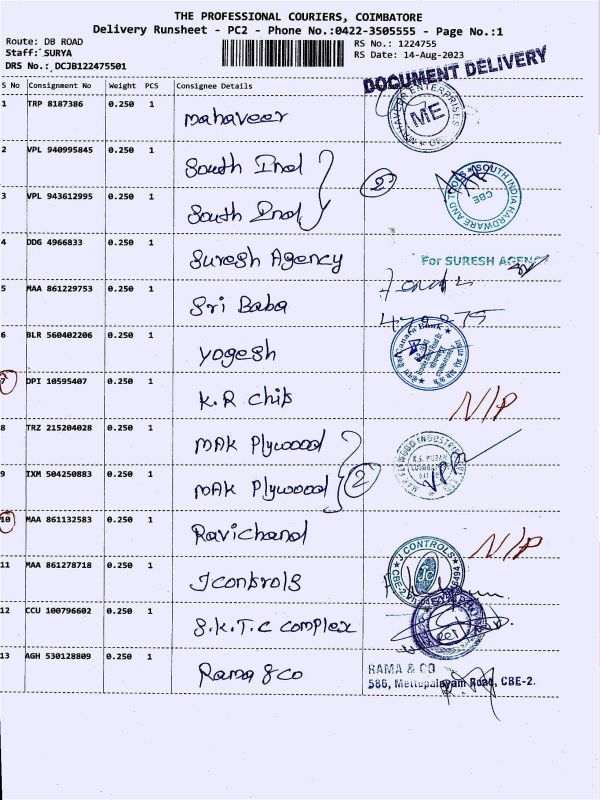 THE PROFESSIONAL COURIERS, COIMBATORE
Delivery Runsheet - PC2 - Phone No.:0422-3505555 - Page No.:1
Route: DB ROAD RS No.: 1224755
Staff: SURYA RS Date: 14-Aug-2023
DRS No.: DCJB122475501
DOCUMENT DELIVERY
S No Consignment No Weight PCS Consignee Details
1 TRP 8187386 0.250 1 Mahaveer ME
2 VPL 940995845 0.250 1 South Ind
2
3 VPL 943612995 0.250 1 South Ind SOUTH INDIA HARDWARE AND TOOLS CBE
4 DDG 4966833 0.250 1 Suresh Agency For SURESH AGENCY
5 MAA 861229753 0.250 1 Sri Baba
6 BLR 560402206 0.250 1 Yogesh Canara Bank
7 DPI 10595407 0.250 1 K.R Chits N/P
8 TRZ 215204028 0.250 1 MAK Plywood
2
9 IXM 504250883 0.250 1 MAK Plywood
10 MAA 861132583 0.250 1 Ravichand N/P
11 MAA 861278718 0.250 1 J controls J CONTROLS JC
12 CCU 100796602 0.250 1 S.K.T.C complex
13 AGH 530128809 0.250 1 Rama & co RAMA & CO
586, Mettupalayam Road, CBE-2.